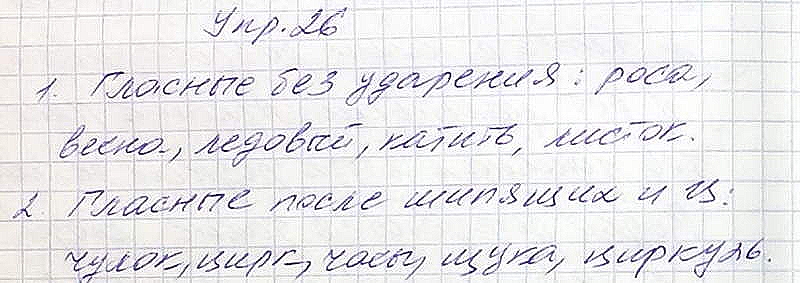 Упр. 26
1. Гласные без ударения: роса,
весна, ледовый, катить, листок.
2. Гласные после шипящих и ц:
чулок, цирк, часы, щука, циркуль.